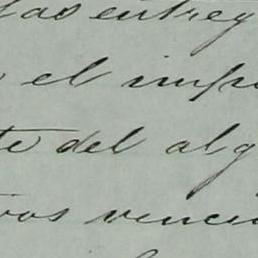 las entreg
el impo
te del alg
ros venci